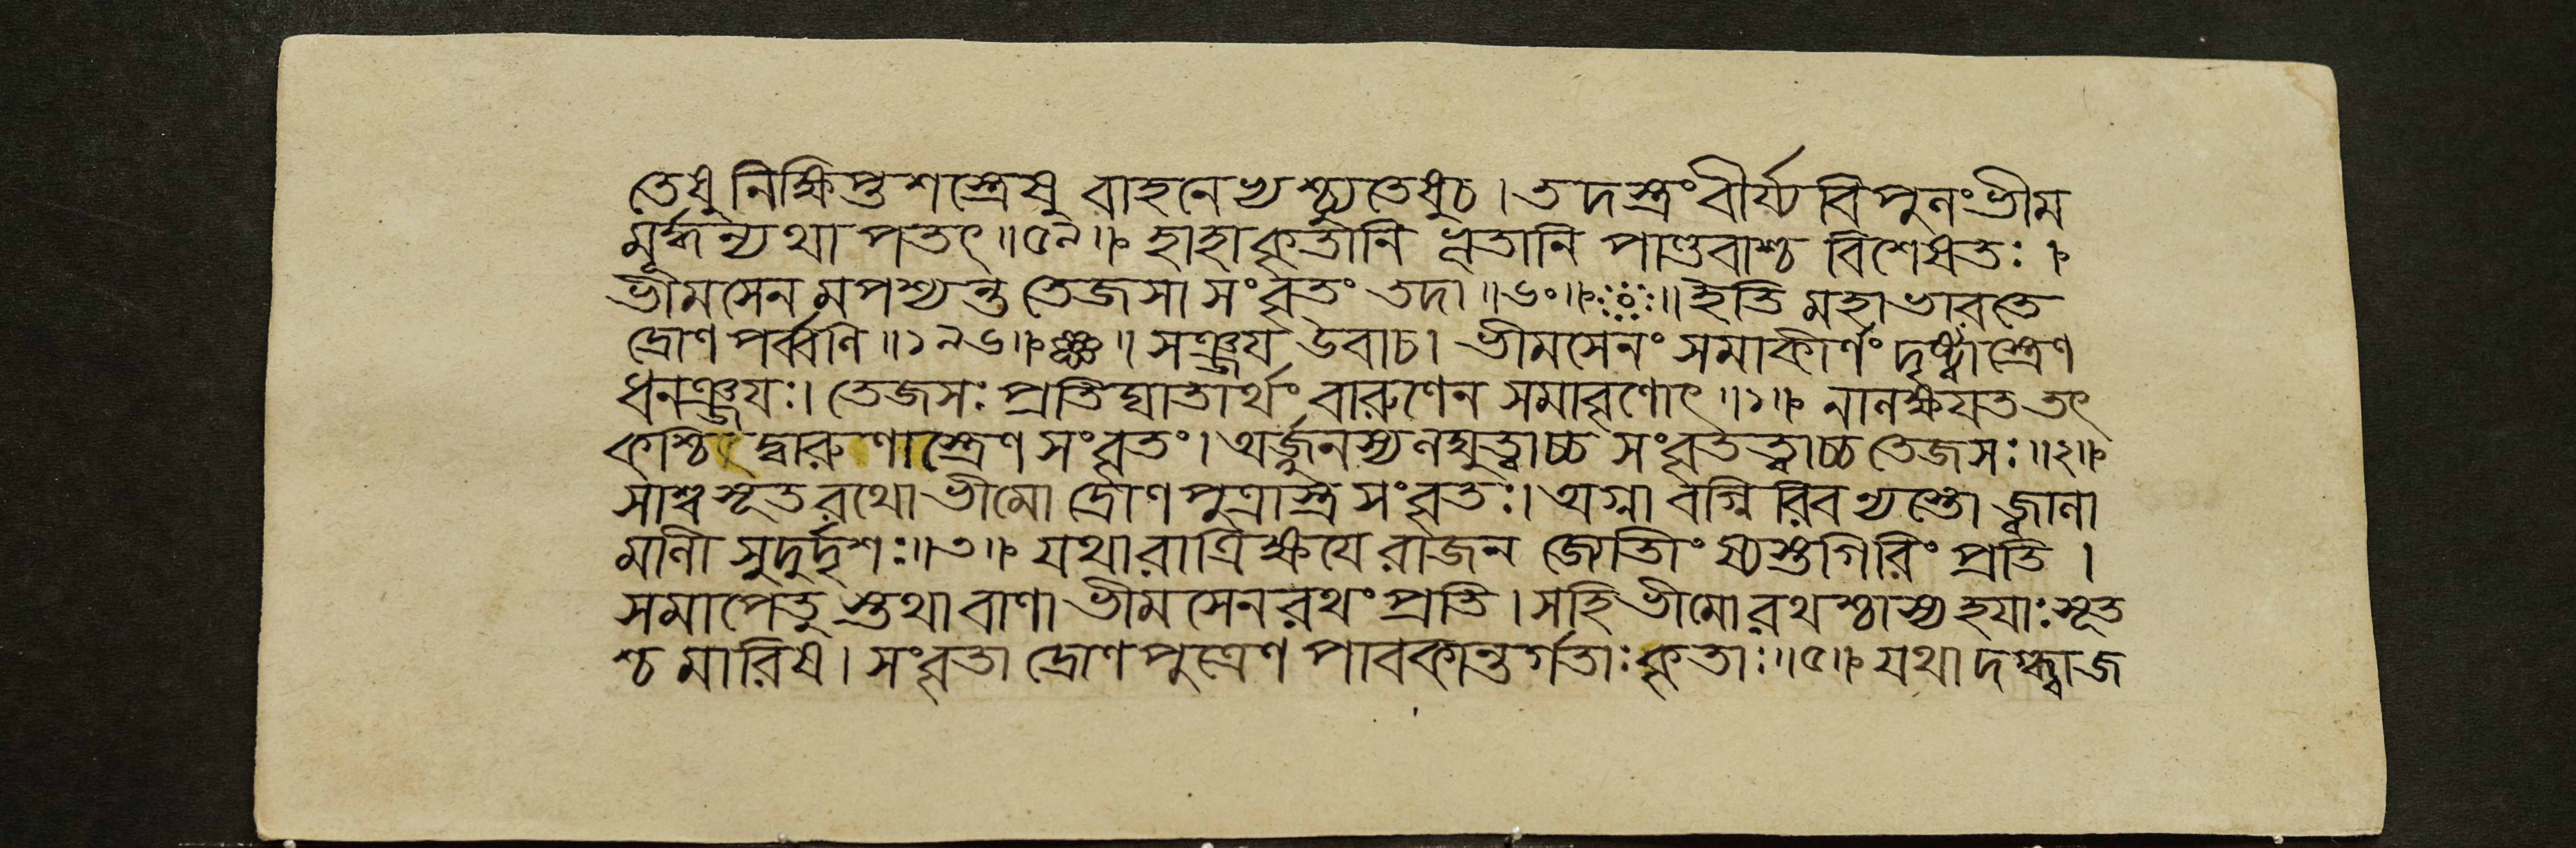 তেষু নিক্ষিপ্তশস্ত্রেষু বাহনেভ্যশ্চ্যুতেষুচ। তদস্ত্রং বীর্য্য বিপুলং ভীম
মূর্দ্ধন্যথা পতৎ॥৫৯॥ হাহাকৃতানি ভূতানি পাণ্ডবাশ্চ বিশেষতঃ।
ভীমসেন মপশ্যন্ত তেজসা সংবৃতং তদা॥৬০॥ ॥ইতি মহাভারতে
দ্রোণ পর্ব্বণি॥১৯৬॥ সঞ্জয় উবাচ। ভীমসেনং সমাকীর্ণং দৃষ্ট্বাস্ত্রেণ
ধনঞ্জয়ঃ। তেজসঃ প্রতিঘাতার্থং বারুণেন সমাবৃণোৎ॥১॥ নালক্ষয়ত তৎ
কশ্চিৎ দ্বারুণাস্ত্রেণ সংবৃতং। অর্জ্জুনস্য লঘুত্বাচ্চ সংবৃতত্বাচ্চ তেজসঃ॥২॥
সাশ্বসূতরথো ভীমো দ্রোণপুত্রাস্ত্রসংবৃতঃ। অগ্না বগ্নিরিব ন্যস্তো জ্বালা
মালী সুদুর্দৃশঃ॥৩॥ যথা রাত্রিক্ষয়ে রাজন জ্যোতিংষ্যস্তগিরিং প্রতি।
সমাপেতু স্তথা বাণা ভীমসেনরথং প্রতি। সহি ভীমো রথশ্চাস্য হয়াঃ সূত
শ্চ মারিষ। সংবৃতা দ্রোণপুত্রেণ পাবকান্তর্গতাঃ কৃতাঃ॥৫॥ যথা দগ্ধ্বাজ